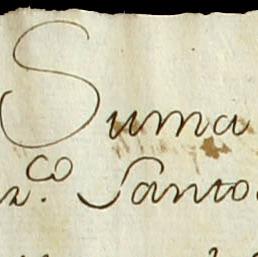 Suma
n.co Santo